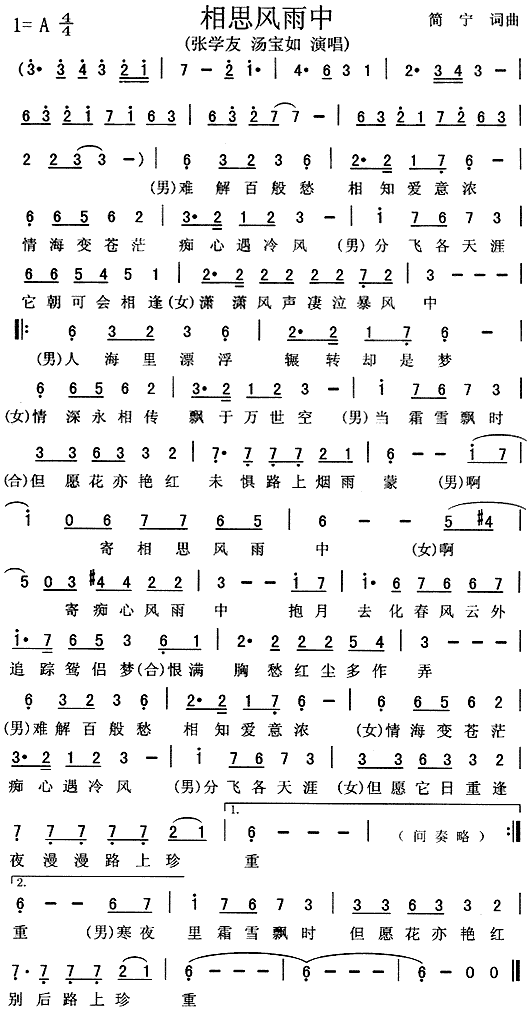 相思风雨中
1=A 4/4
简 宁 词曲
(张学友 汤宝如 演唱)
(3· 3 4 3 2 1 | 7 - 2 1 | 4· 6 3 1 | 2· 3 4 3 - |
6 3 2 1 7 1 6 3 | 6 3 2 1 2 7 | 7 7 - | 6 3 2 1 7 2 6 3 |
2 2 3 3 -) | 6 3 2 3 6 | 2· 2 1 7 6 - |
(男)难 解 百 般 愁 相 知 爱 意 浓
6 6 5 6 2 | 3· 2 1 2 3 - | i 7 6 7 3 |
情 海 变 苍 茫 痴 心 遇 冷 风 (男)分 飞 各 天 涯
6 6 5 4 5 5 1 | 2· 2 2 2 2 7 2 | 3 - - - |
它 朝 可 会 相 逢(女)潇 潇 风 声 凄 泣 暴 风 中
‖: 6 3 2 3 6 | 2· 2 1 7 6 - |
(男)人 海 里 漂 浮 辗 转 却 是 梦
6 6 5 6 2 | 3· 2 1 2 3 - | i 7 6 7 3 |
(女)情 深 永 相 传 飘 于 万 世 空 (男)当 霜 雪 飘 时
3 3 6 3 3 2 | 7· 7 7 7 2 1 | 6 - - i 7 |
(合)但 愿 花 亦 艳 红 未 惧 路 上 烟 雨 蒙 (男)啊
i 0 6 7 7 6 5 | 6 - - 5 #4 |
寄 相 思 风 雨 中 (女)啊
5 0 3 #4 4 2 2 | 3 - - i 7 | i· 6 7 6 6 7 |
寄 痴 心 风 雨 中 抱 月 去 化 春 风 云 外
i· 7 6 5 3 6 1 | 2· 2 2 2 5 4 | 3 - - - |
追 踪 鸳 侣 梦(合)恨 满 胸 愁 红 尘 多 作 弄
6 3 2 3 6 | 2· 2 1 7 6 - | 6 6 5 6 2 |
(男)难 解 百 般 愁 相 知 爱 意 浓 (女)情 海 变 苍 茫
3· 2 1 2 3 - | i 7 6 7 3 | 3 3 6 3 3 2 |
痴 心 遇 冷 风 (男)分 飞 各 天 涯 (女)但 愿 它 日 重 逢
1.
7 7 7 7 7 2 1 | 6 - - - | (间奏略) :‖
夜 漫 漫 路 上 珍 重
2.
6 - - 6 7 | i 7 6 7 3 | 3 3 6 3 3 2 |
重 (男)寒 夜 里 霜 雪 飘 时 但 愿 花 亦 艳 红
7· 7 7 7 2 1 | 6 - - - | 6 - - - | 6 - 0 0 ‖
别 后 路 上 珍 重